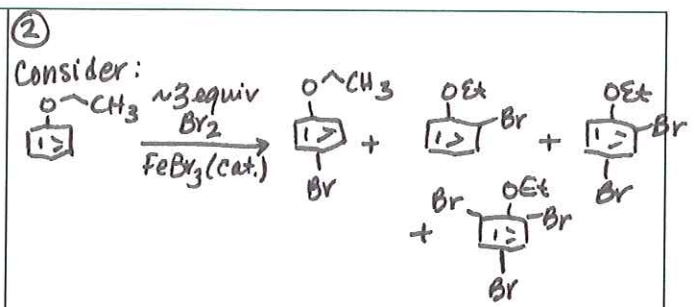 ②
Consider:
O CH3 ~3 equiv Br2 FeBr3 (cat.) O CH3 Br + OEt Br + OEt Br Br
+ Br OEt Br Br